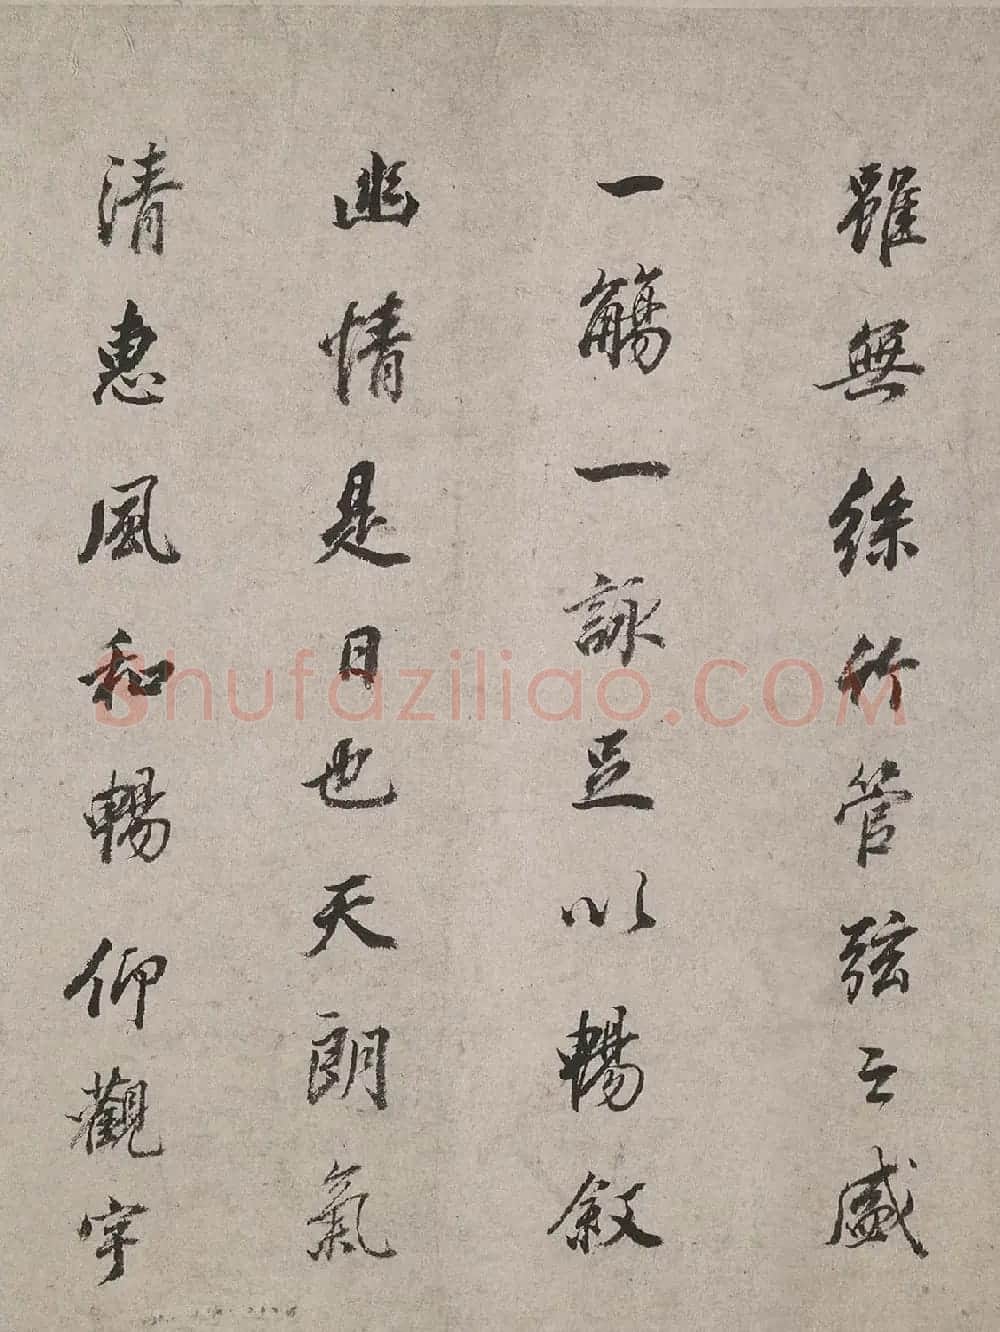 雖無絲竹管弦之盛
一觴一詠足以暢敘
幽情是日也天朗氣
清惠風和暢仰觀宇
Shufaziliao.COM